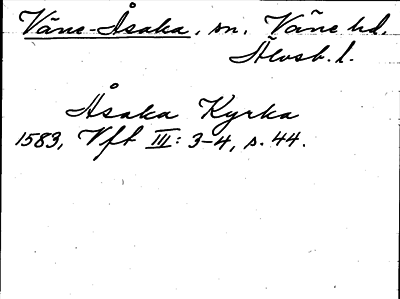 Väne-Åsaka, sn. Väne hd.
Älvsb. l.
Åsaka Kyrka
1583, Vft III: 3-4, s. 44.